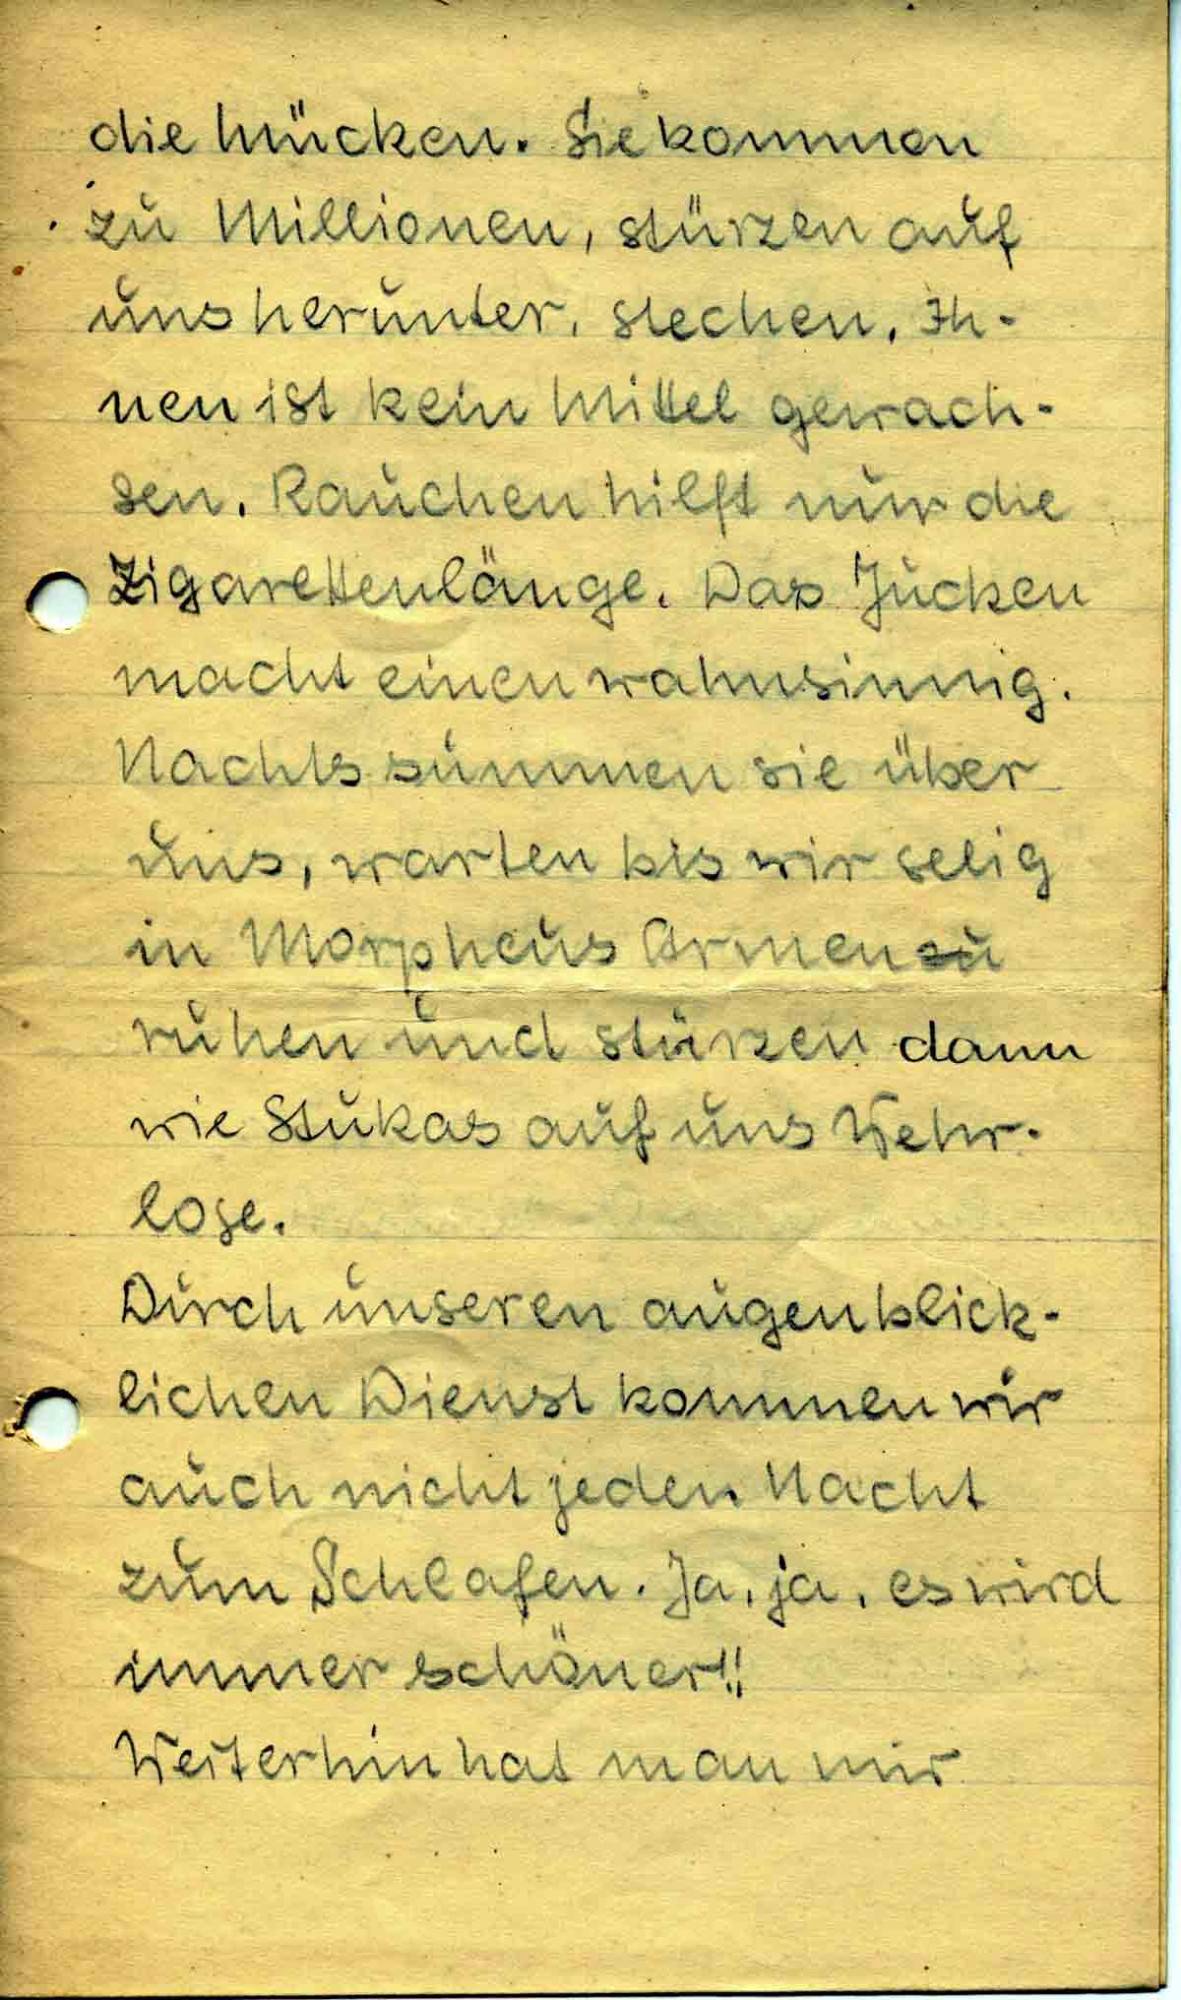 die Mücken. Sie kommen
zu Millionen, stürzen auf
uns herunter, stechen. Ih-
nen ist kein Mittel gewach-
sen. Rauchen hilft nur die
Zigarettenlänge. Das Jucken
macht einen wahnsinnig.
Nachts summen sie über
uns, warten bis wir selig
in Morpheus Armen zu
ruhen und stürzen dann
wie Stukas auf uns Wehr-
lose.
Durch unseren augenblick-
lichen Dienst kommen wir
auch nicht jeden Nacht
zum Schlafen. Ja, ja, es wird
immer schöner!!
Weiterhin hat man mir